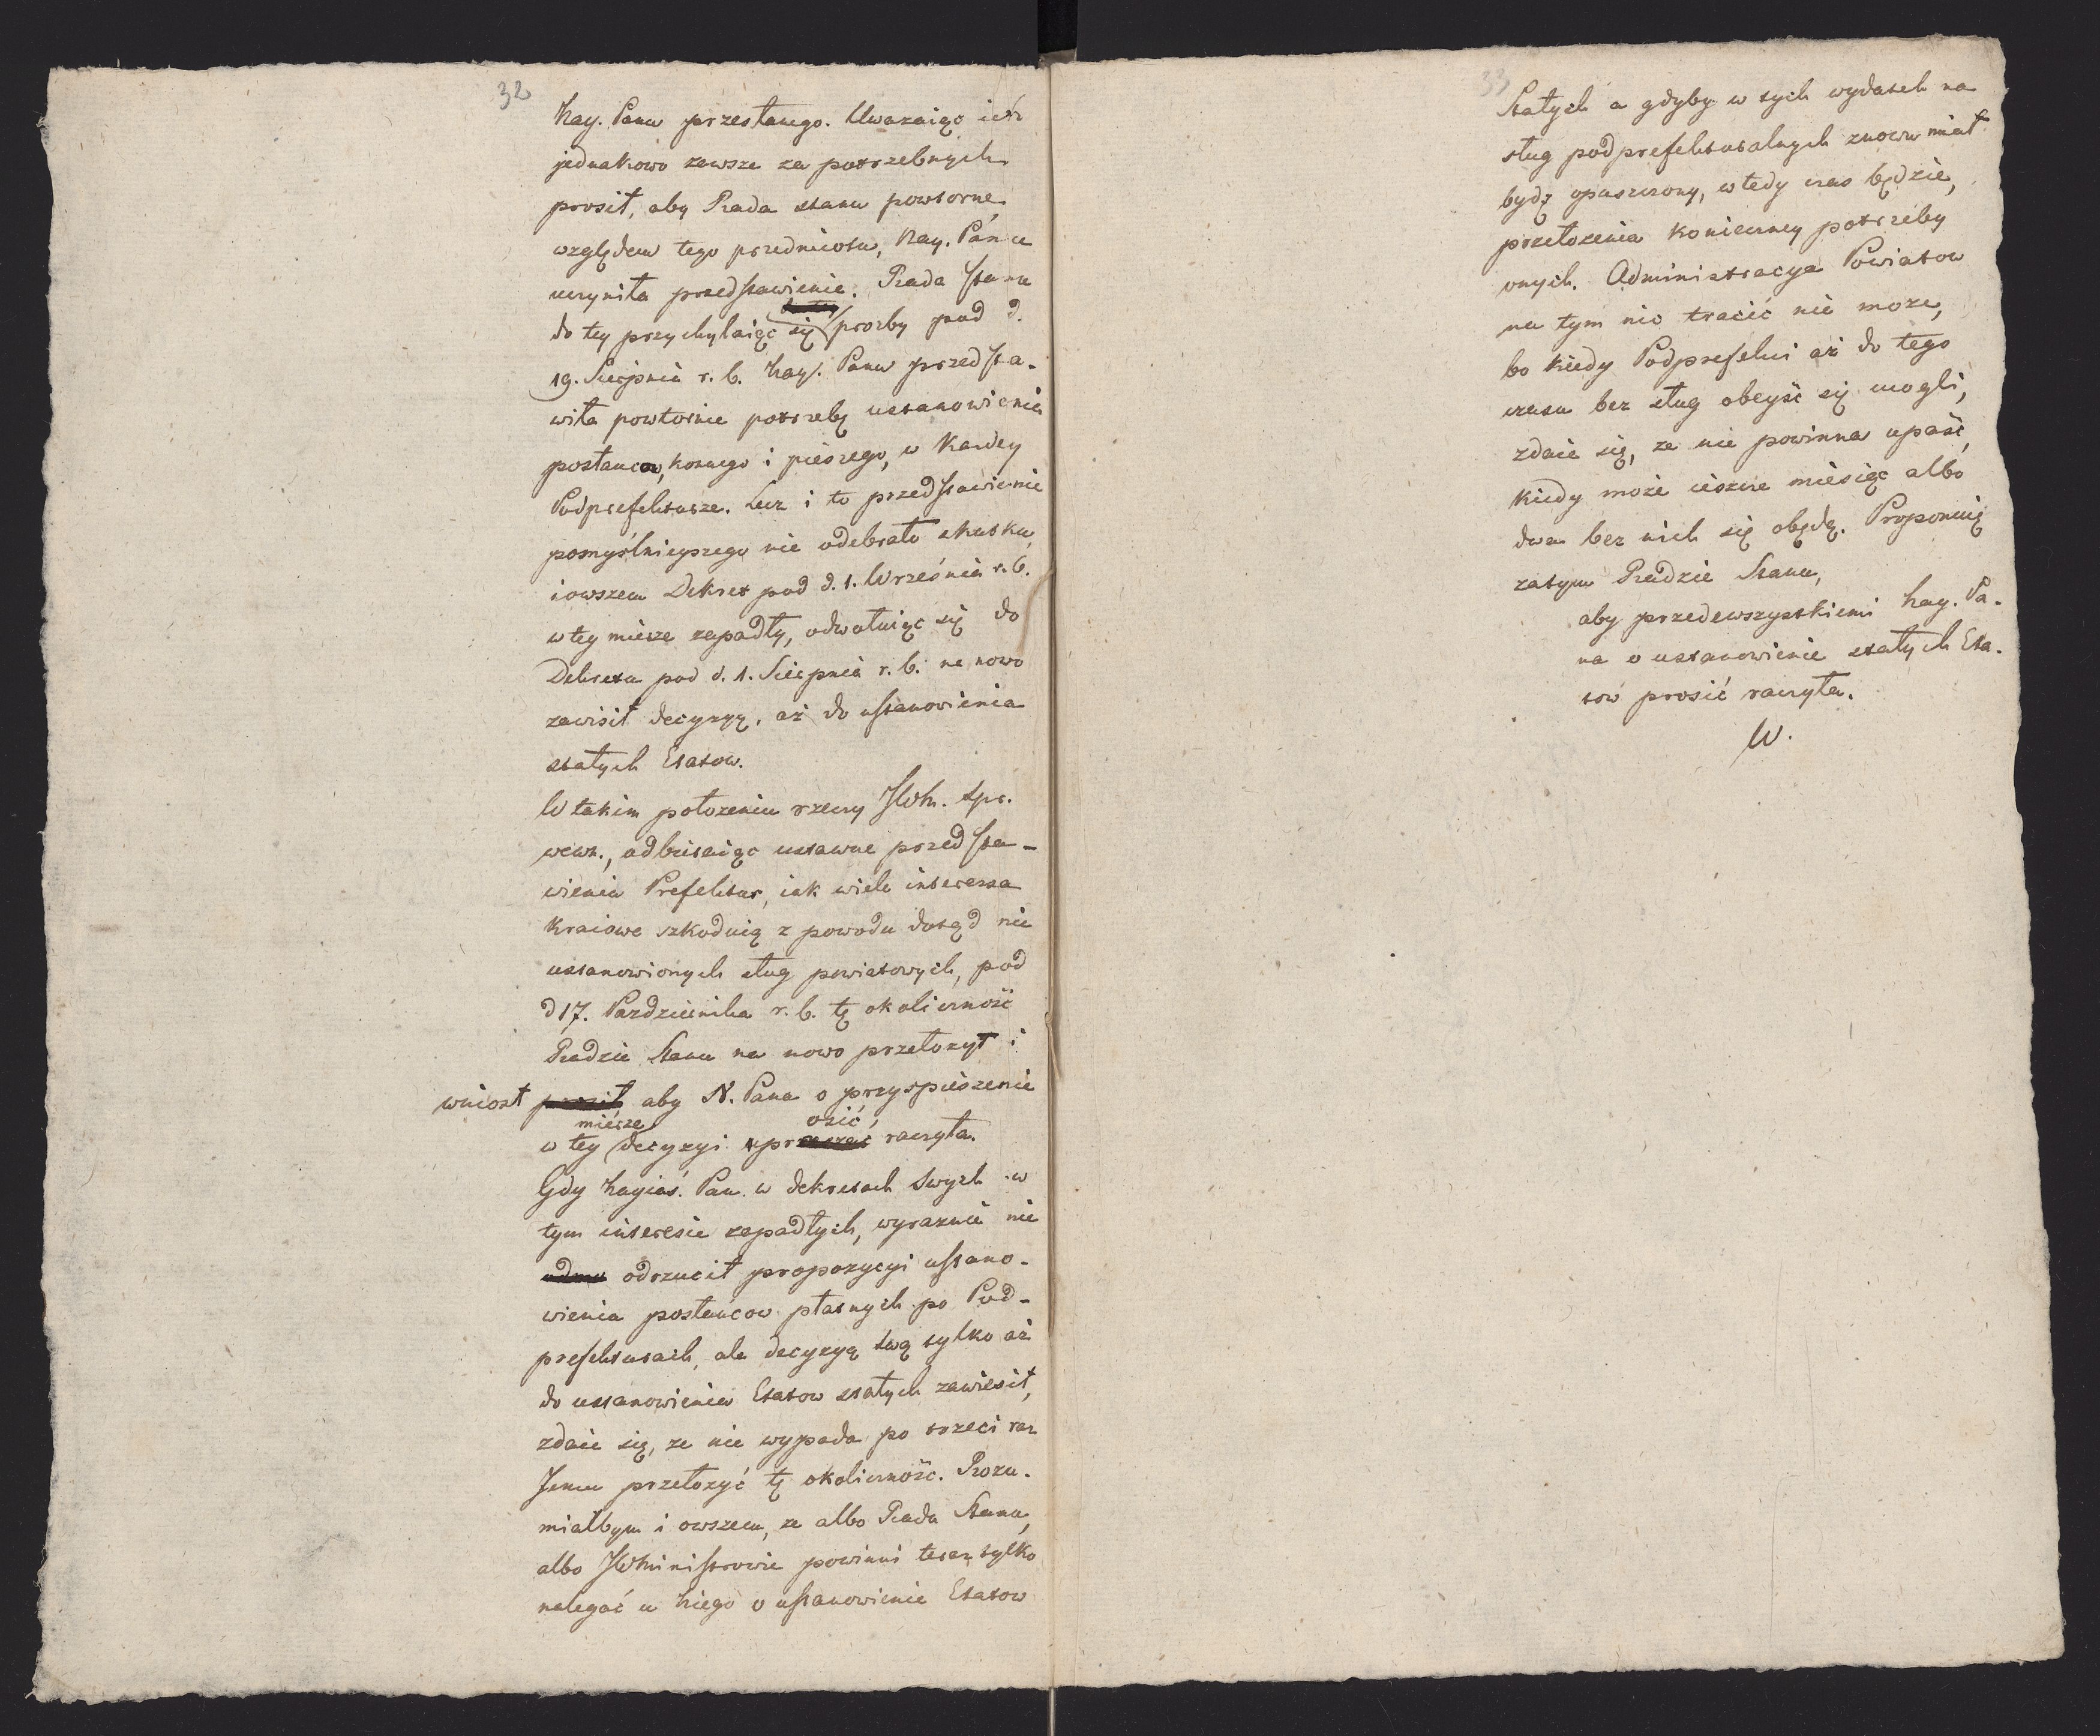 32
Nay. Panu przesłanego. Uważaiąc ich
jednakowo zawsze za potrzebnych
prosił, aby Rada stanu powtorne
względem tego przedmiotu, Nay. Panu
uczyniła przedstawienie. Rada stanu
do tey przychylaiąc się prozby pod d.
19. Sierpnia r. b. Nay. Panu przedsta-
wiła powtornie potrzebę ustanowienia
posłancow, konnego i pieszego, w każdey
Podprefekturze. Lecz i to przedstawienie
pomyślnieyszego nie odebrało skutku,
iowszem Dekret pod d. 1. Września r. b.
w tey mierze zapadły, odwołuiąc się do
Dekretu pod d. 1. Sierpnia r. b. na nowo
zawisił decyzyą, aż do ustanowienia
stałych Etatow.
W takim położeniu rzeczy JWM. Spr.
wewn., odbieraiąc ustawne przedsta-
wienia Prefektur, iak wiele interessa
kraiowe szkoduią z powodu dotąd nie
ustanowionych sług powiatowych, pod
d 17. Pazdziernika r. b. tę okoliczność
Radzie Stanu na nowo przełożył i
wniosł prosił aby N. Pana o przyspieszenie
mierze osić,
w tey decyzyi upraszać raczyła.
Gdy Nayiaś. Pan w dekretach swych w
tym interesie zapadłych, wyraznie nie
odrzucił propozycyi ustano-
wienia posłańcow płatnych po Pod-
prefekturach, ale decyzyą swą tylko aż
do ustanowienia Etatow stałych zawiesił,
zdaie się, ze nie wypada po trzeci raz
Jemu przełożyć tę okoliczność. Rozu-
miałbym i owszem, ze albo Rada Stanu,
albo JWMinistrowie powinni teraz tylko
nalegać u Niego o ustanowienie Etatow
33
Stałych a gdyby w tych wydatek na
sług podprefekturalnych znowu miał
bydź opuszczony, wtedy czas będzie,
przełożenia konieczney potrzeby
onych. Administracya Powiatow
na tym nic tracić nie może,
bo kiedy Podprefekci aż do tego
czasu bez sług obeyść się mogli,
zdaie się, ze nie powinna upaść,
kiedy może ieszcze miesiąc albo
dwa bez nich się obędą. Proponuię
zatym Radzie Stanu,
aby przedewszystkiemi Nay. Pa-
na o ustanowienie stałych Eta-
tow prosić raczyła.
W.